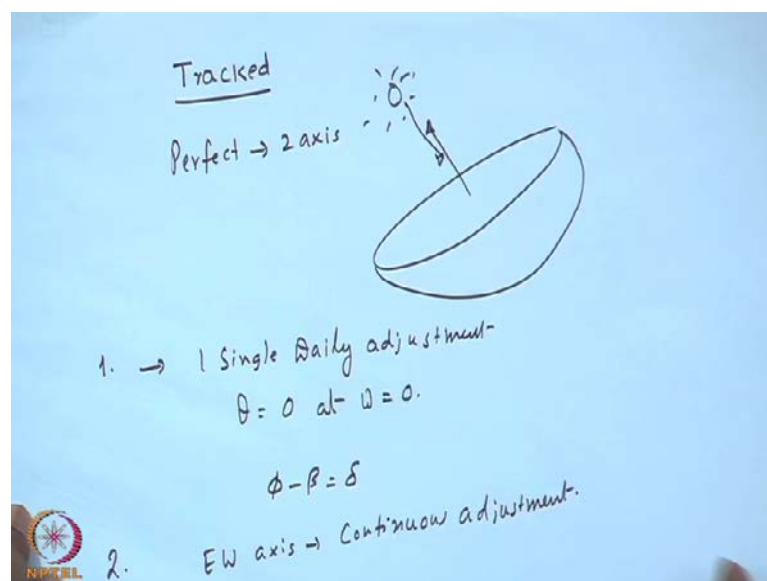 Tracked
Perfect → 2 axis
1. → 1 Single Daily adjustment
θ = 0 at ω = 0.
φ - β = δ
2. EW axis → Continuous adjustment.
NPTEL